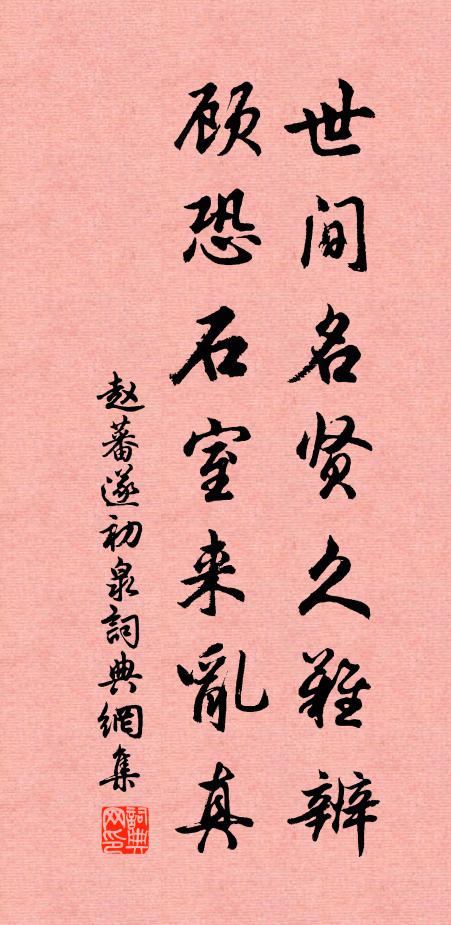 世间名贤久难辨
顾恐石室来亂真
赵蕃遂初泉詞典網集
詞典网印